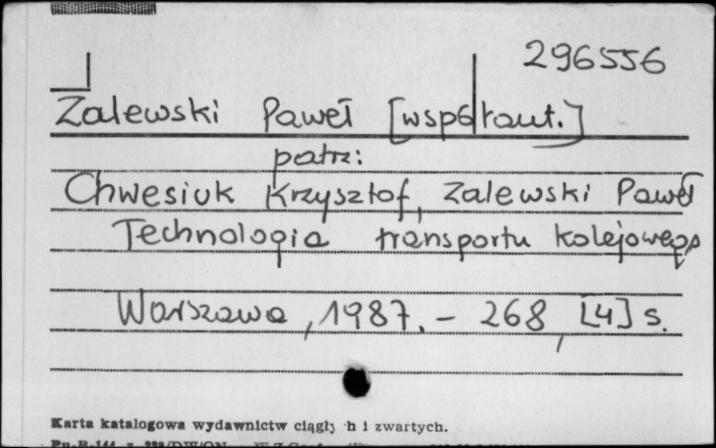 296556
Zalewski Paweł [współaut.]
patrz:
Chwesiuk Krzysztof, Zalewski Paweł
Technologia transportu kolejowego
Warszawa, 1987. - 268, [4] s.
Karta katalogowa wydawnictw ciągły h i zwartych.